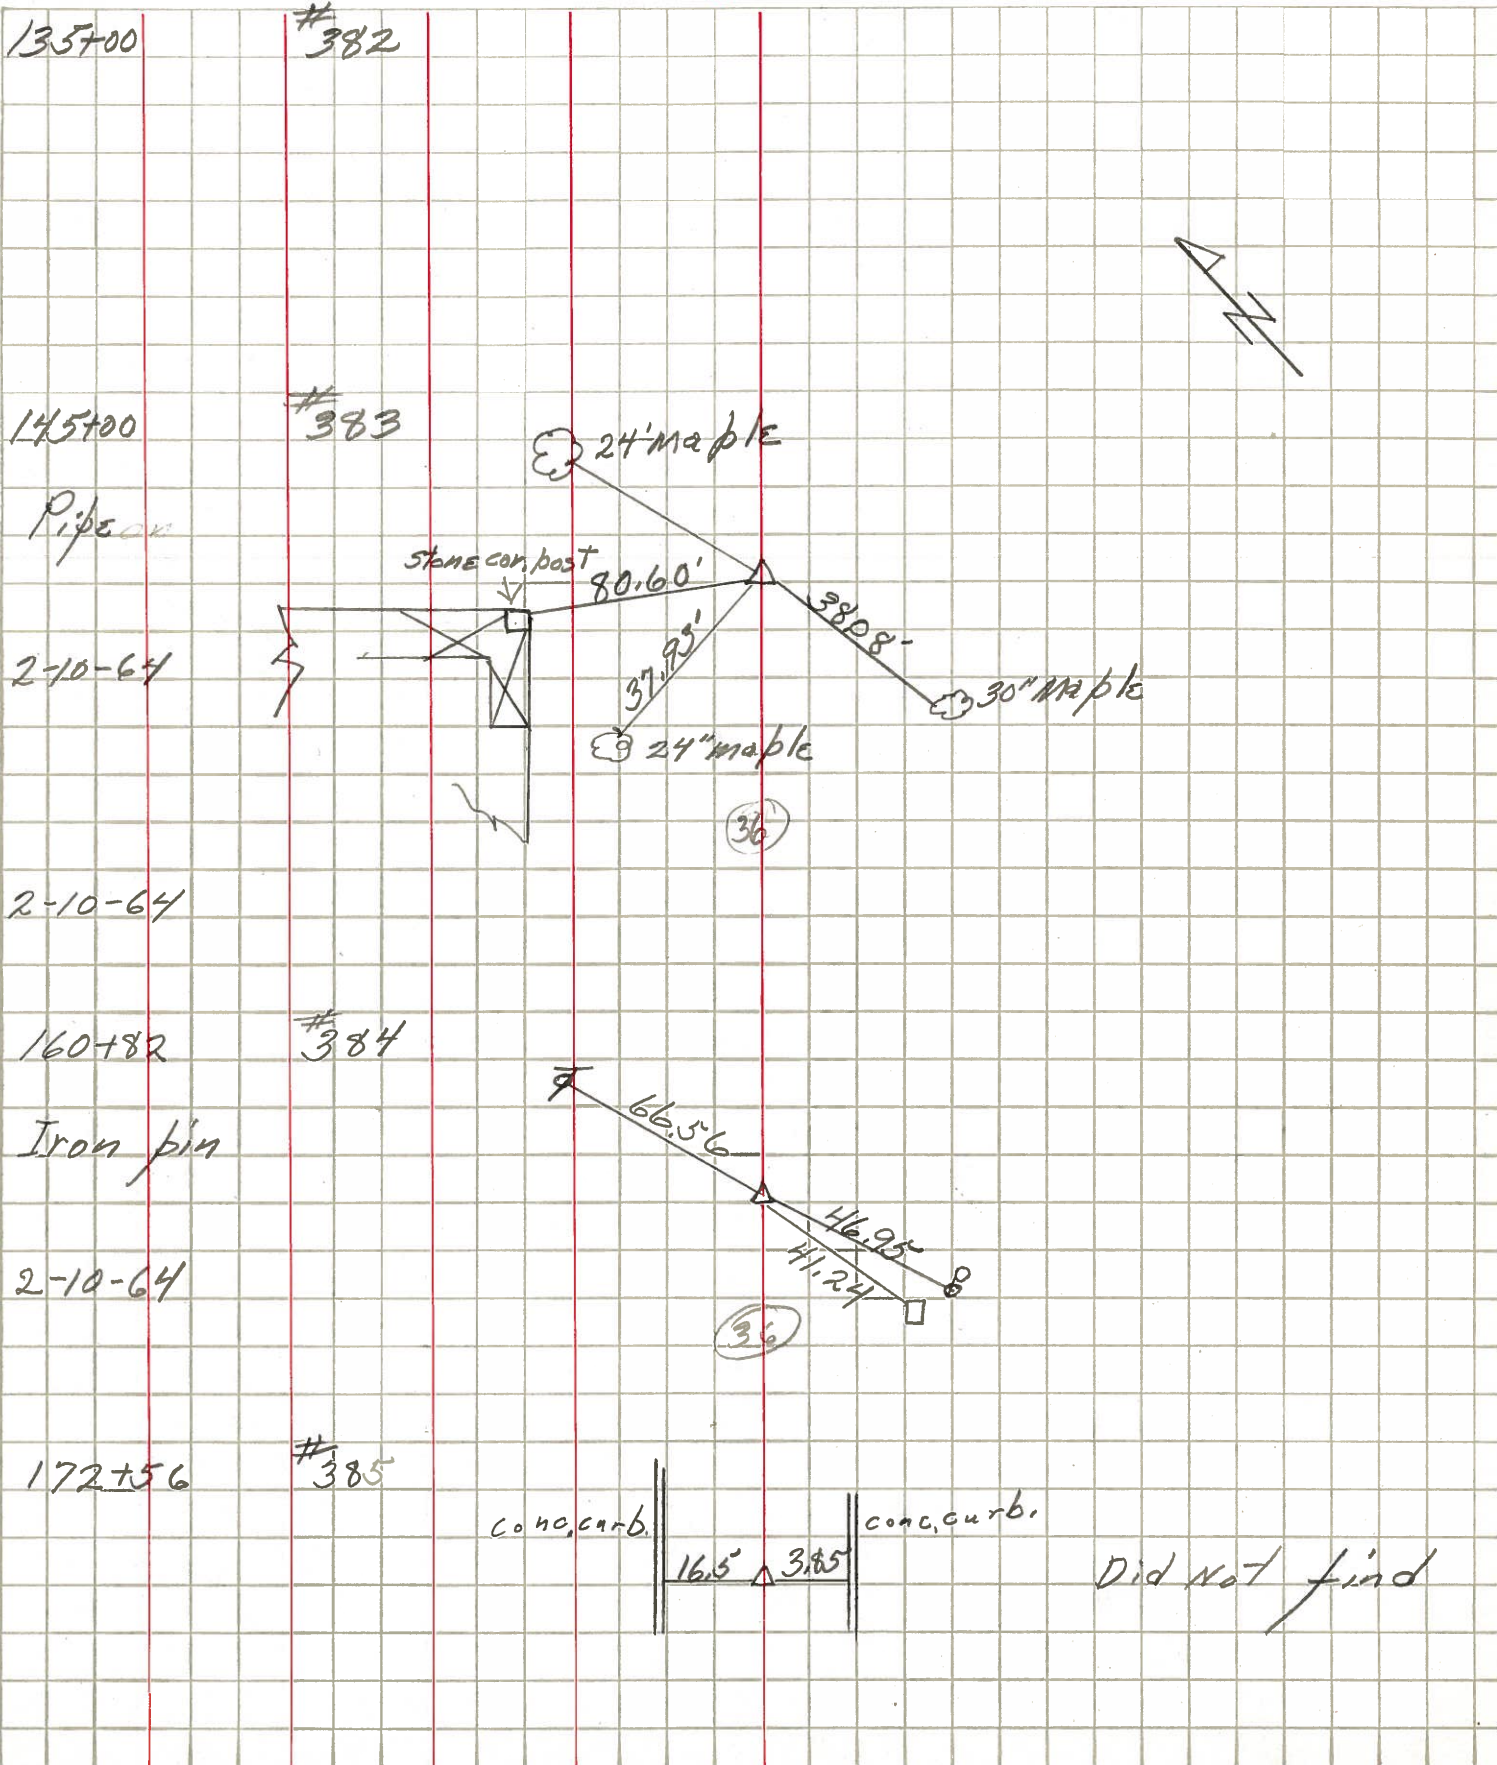 135+00 #382
145+00 #383
24' Maple
Pipe
stone cor. post
80.60'
38.08'
2-10-64
37.93'
30" Maple
24" maple
36
2-10-64
160+82 #384
66.56
Iron pin
46.95
41.24
2-10-64
36
172+56 #385
conc. curb. conc. curb.
16.5 3.85 Did Not find